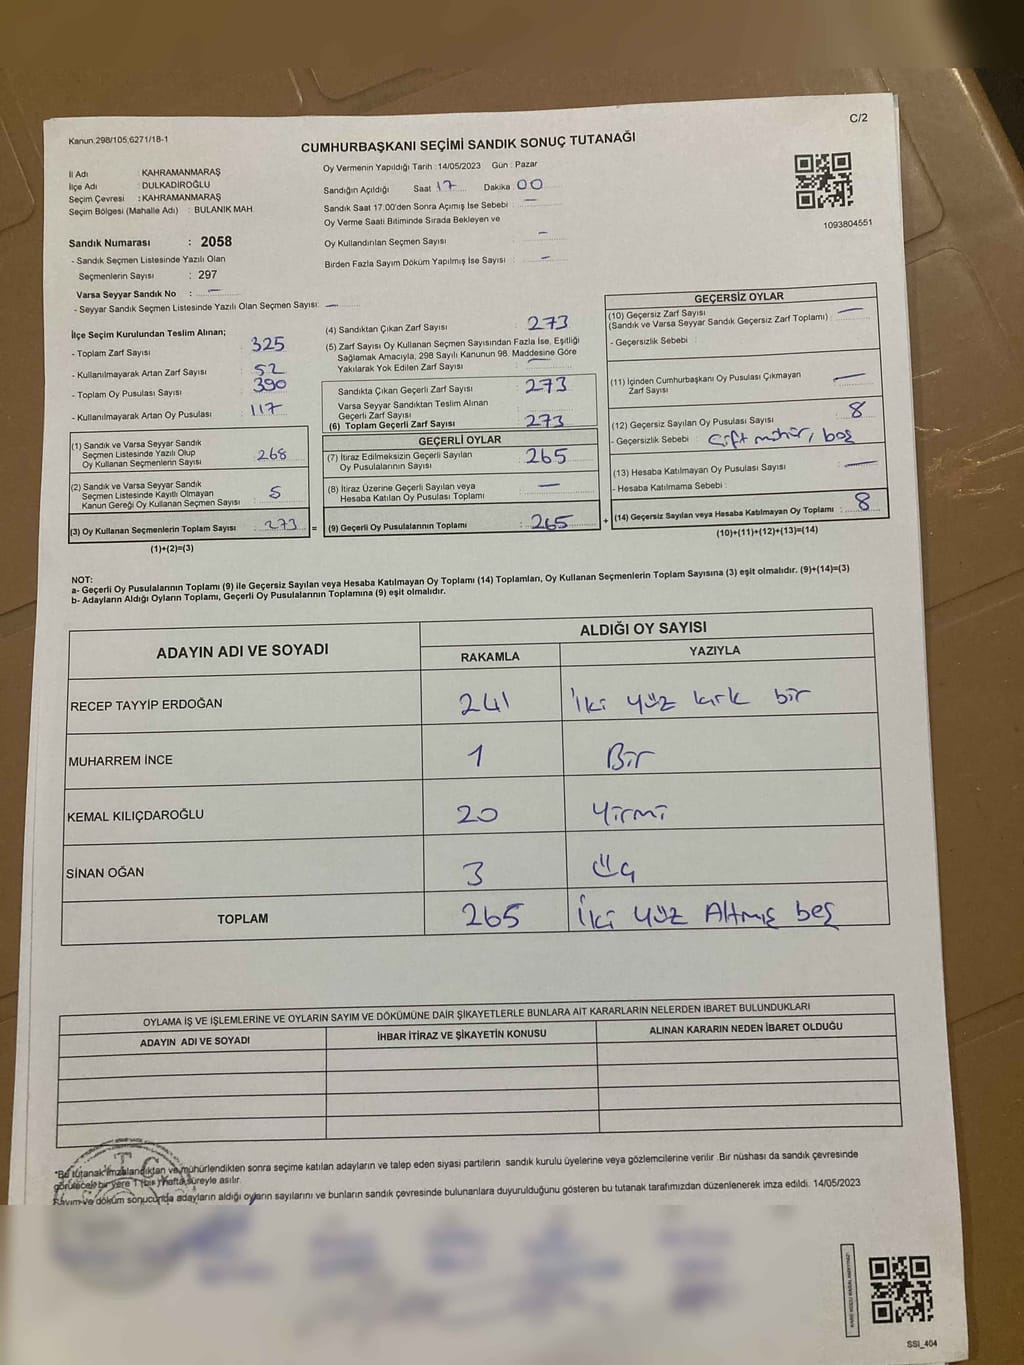 Kanun 298/105,6271/18-1
C/2
CUMHURBAŞKANI SEÇİMİ SANDIK SONUÇ TUTANAĞI
İl Adı : KAHRAMANMARAŞ
İlçe Adı : DULKADİROĞLU
Seçim Çevresi : KAHRAMANMARAŞ
Seçim Bölgesi (Mahalle Adı) : BULANIK MAH.
Oy Vermenin Yapıldığı Tarih : 14/05/2023 Gün : Pazar
Sandığın Açıldığı Saat 17 Dakika 00
Sandık Saat 17.00'den Sonra Açımış İse Sebebi : —
Oy Verme Saati Bitiminde Sırada Bekleyen ve
Oy Kullandırılan Seçmen Sayısı : —
Birden Fazla Sayım Döküm Yapılmış İse Sayısı : —
1093804551
Sandık Numarası : 2058
- Sandık Seçmen Listesinde Yazılı Olan
Seçmenlerin Sayısı : 297
Varsa Seyyar Sandık No : —
- Seyyar Sandık Seçmen Listesinde Yazılı Olan Seçmen Sayısı: —
İlçe Seçim Kurulundan Teslim Alınan;
- Toplam Zarf Sayısı 325
- Kullanılmayarak Artan Zarf Sayısı : 52
- Toplam Oy Pusulası Sayısı : 390
- Kullanılmayarak Artan Oy Pusulası : 117
(1) Sandık ve Varsa Seyyar Sandık
Seçmen Listesinde Yazılı Olup
Oy Kullanan Seçmenlerin Sayısı : 268
(2) Sandık ve Varsa Seyyar Sandık
Seçmen Listesinde Kayıtlı Olmayan
Kanun Gereği Oy Kullanan Seçmen Sayısı : 5
(3) Oy Kullanan Seçmenlerin Toplam Sayısı : 273 =
(1)+(2)=(3)
(4) Sandıktan Çıkan Zarf Sayısı : 273
(5) Zarf Sayısı Oy Kullanan Seçmen Sayısından Fazla İse, Eşitliği
Sağlamak Amacıyla, 298 Sayılı Kanunun 98. Maddesine Göre
Yakılarak Yok Edilen Zarf Sayısı : —
Sandıkta Çıkan Geçerli Zarf Sayısı : 273
Varsa Seyyar Sandıktan Teslim Alınan
Geçerli Zarf Sayısı
(6) Toplam Geçerli Zarf Sayısı : 273
GEÇERLİ OYLAR
(7) İtiraz Edilmeksizin Geçerli Sayılan
Oy Pusulalarının Sayısı : 265
(8) İtiraz Üzerine Geçerli Sayılan veya
Hesaba Katılan Oy Pusulası Toplamı : —
(9) Geçerli Oy Pusulalarının Toplamı : 265 +
GEÇERSİZ OYLAR
(10) Geçersiz Zarf Sayısı : —
(Sandık ve Varsa Seyyar Sandık Geçersiz Zarf Toplamı)
- Geçersizlik Sebebi :
(11) İçinden Cumhurbaşkanı Oy Pusulası Çıkmayan
Zarf Sayısı : —
(12) Geçersiz Sayılan Oy Pusulası Sayısı : 8
- Geçersizlik Sebebi : Çift mühür, boş
(13) Hesaba Katılmayan Oy Pusulası Sayısı : —
- Hesaba Katılmama Sebebi :
(14) Geçersiz Sayılan veya Hesaba Katılmayan Oy Toplamı : 8
(10)+(11)+(12)+(13)=(14)
NOT:
a- Geçerli Oy Pusulalarının Toplamı (9) ile Geçersiz Sayılan veya Hesaba Katılmayan Oy Toplamı (14) Toplamları, Oy Kullanan Seçmenlerin Toplam Sayısına (3) eşit olmalıdır. (9)+(14)=(3)
b- Adayların Aldığı Oyların Toplamı, Geçerli Oy Pusulalarının Toplamına (9) eşit olmalıdır.
ADAYIN ADI VE SOYADI
ALDIĞI OY SAYISI
RAKAMLA YAZIYLA
RECEP TAYYİP ERDOĞAN 241 İki yüz kırk bir
MUHARREM İNCE 1 Bir
KEMAL KILIÇDAROĞLU 20 Yirmi
SİNAN OĞAN 3 Üç
TOPLAM 265 İki yüz Altmış beş
OYLAMA İŞ VE İŞLEMLERİNE VE OYLARIN SAYIM VE DÖKÜMÜNE DAİR ŞİKAYETLERLE BUNLARA AİT KARARLARIN NELERDEN İBARET BULUNDUKLARI
ADAYIN ADI VE SOYADI İHBAR İTİRAZ VE ŞİKAYETİN KONUSU ALINAN KARARIN NEDEN İBARET OLDUĞU
T.C.
*Bu tutanak imzalandıktan ve mühürlendikten sonra seçime katılan adayların ve talep eden siyasi partilerin sandık kurulu üyelerine veya gözlemcilerine verilir. Bir nüshası da sandık çevresinde
görülecek bir yere 1 (bir) hafta süreyle asılır.
Sayım ve döküm sonucunda adayların aldığı oyların sayılarını ve bunların sandık çevresinde bulunanlara duyurulduğunu gösteren bu tutanak tarafımızdan düzenlenerek imza edildi. 14/05/2023
SSİ_404